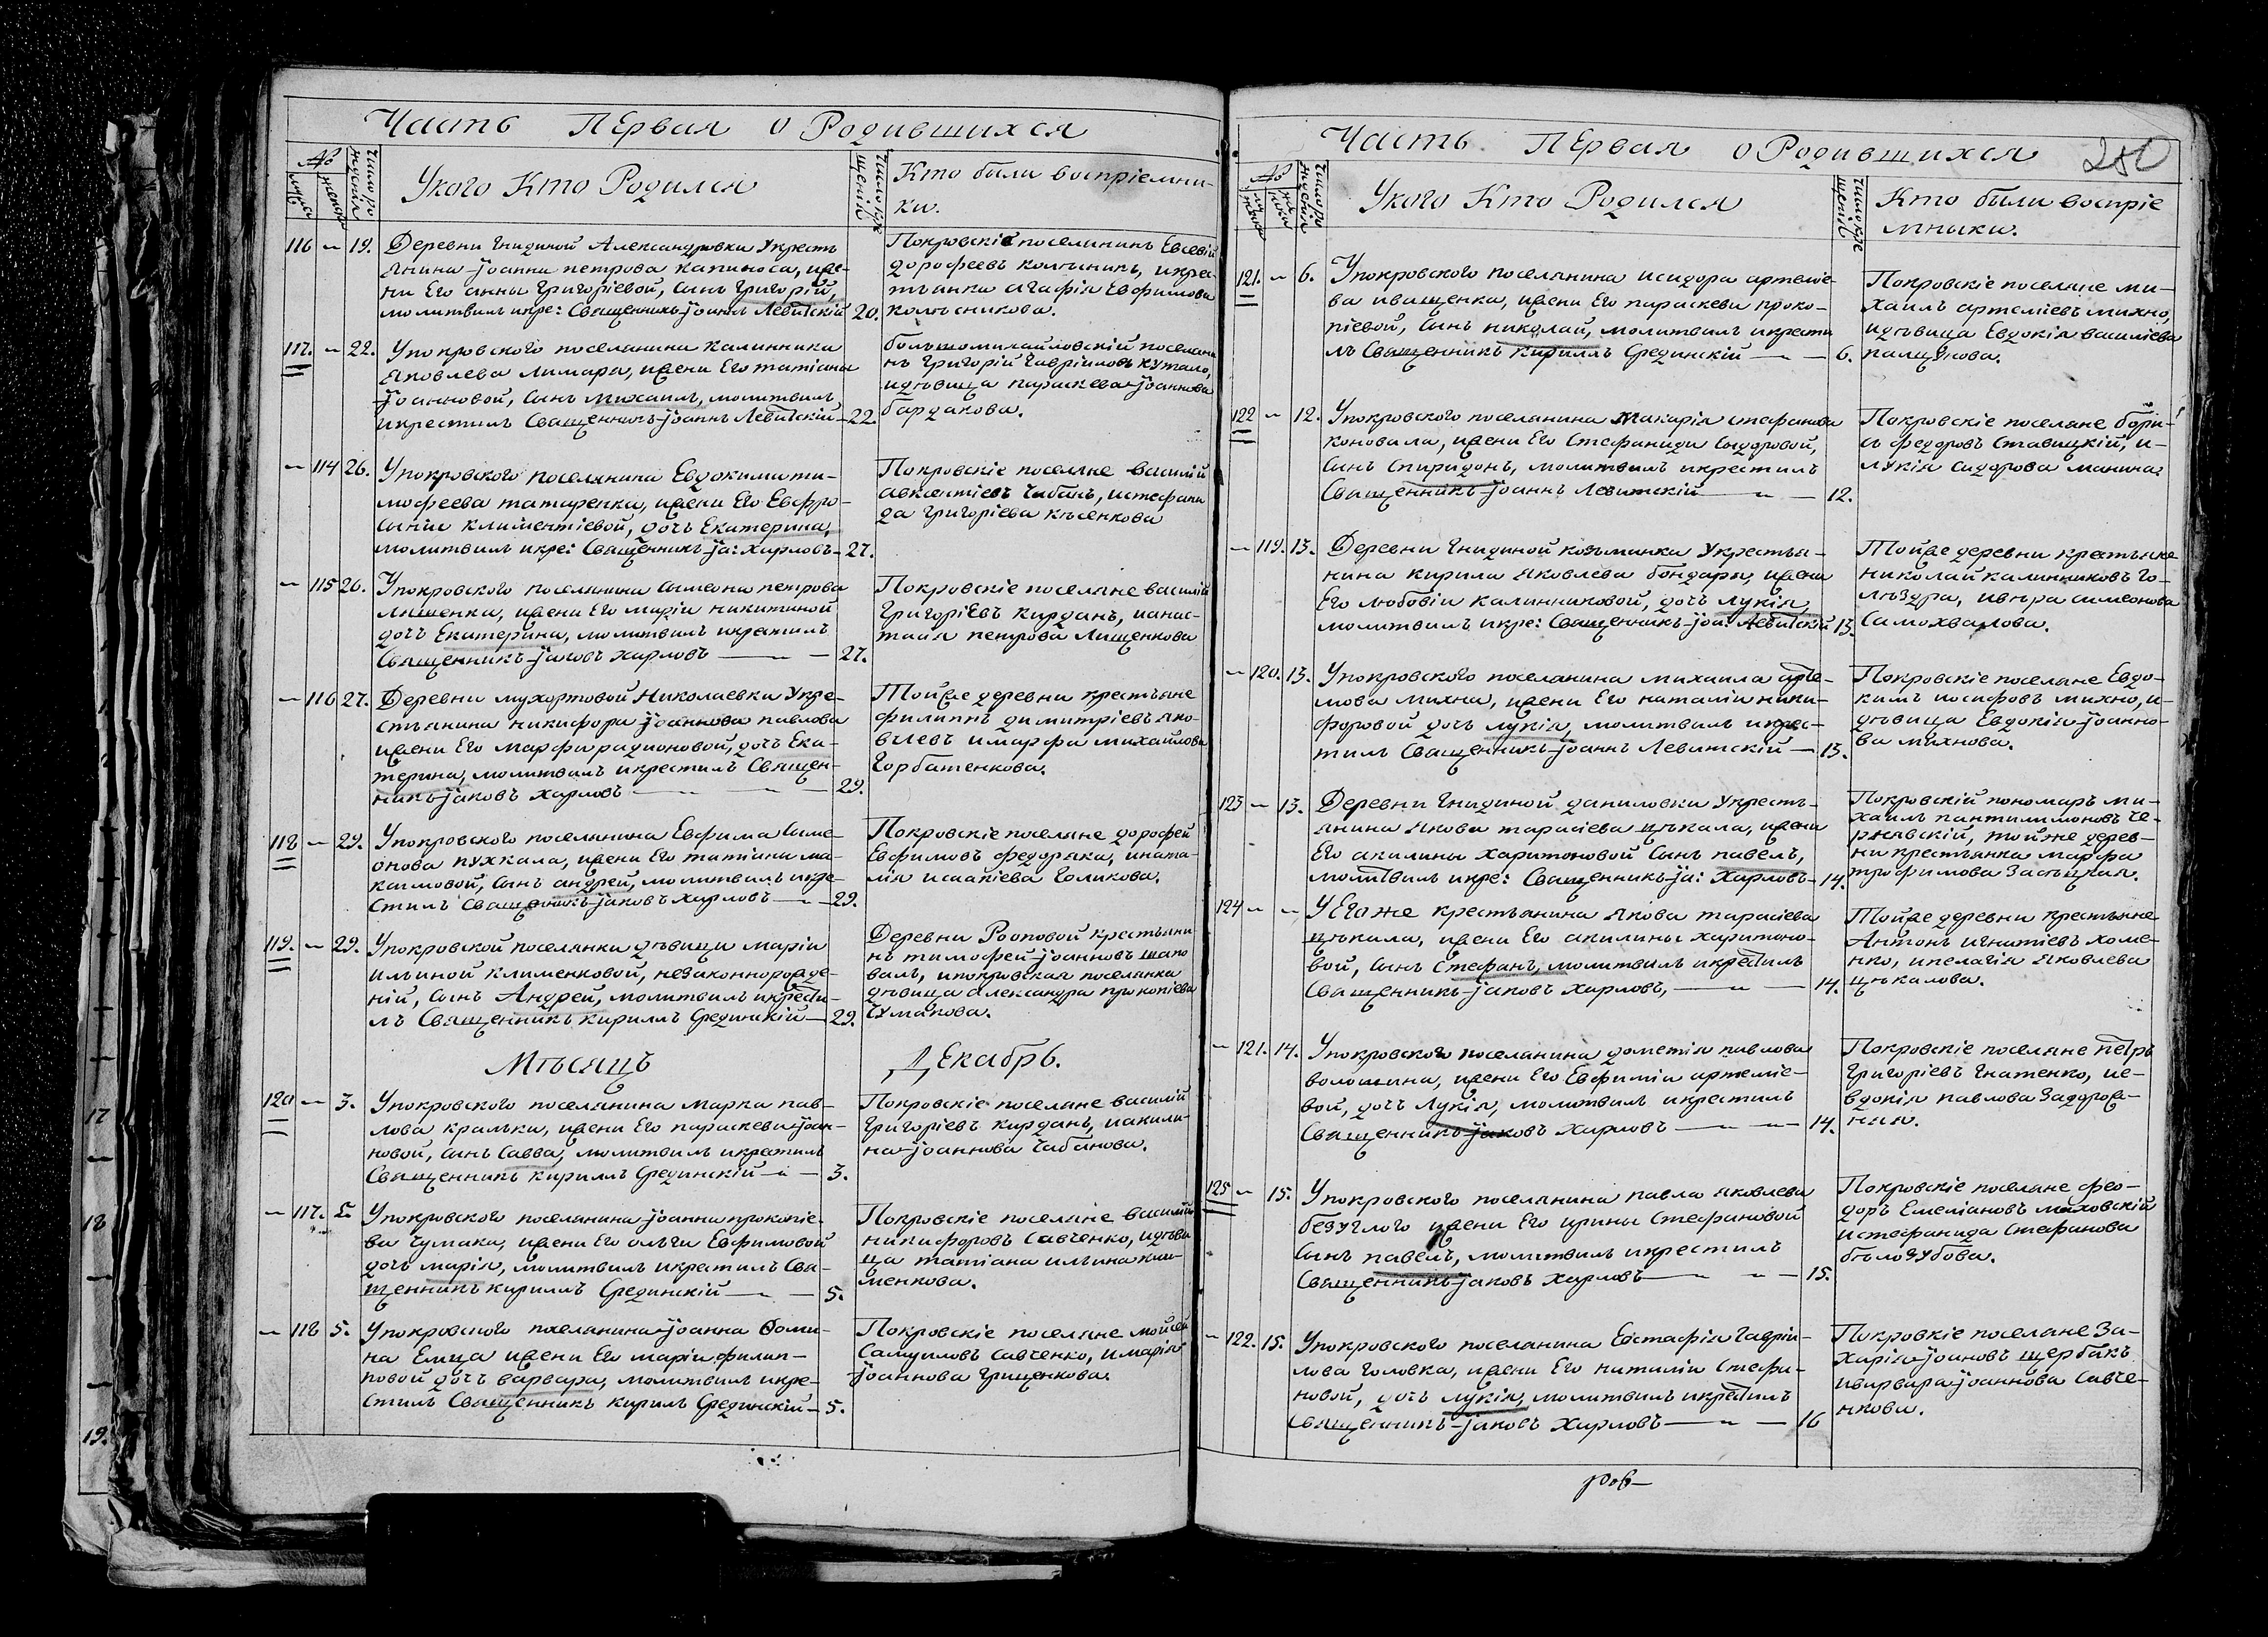 Часть Первая о Родившихся
№ Число рождения Укого Кто Родился Число крещенія Кто были воспріемни-
мужеска женска ки.
116 — 19. Деревни Гнидиной Александровки Укресть
янина Іоанна петрова капиноса, иже-
ни Его анны Григоріевой, Сынъ Григорій,
молитвилъ икре: Священникъ Іоаннъ Левитскій 20.
Покровскіе поселянинъ Евсевій
дорофеевъ
тьянка агафія Евфимова
колесникова.
117. — 22. Упокровского поселянина калинника
яковлева лимара, ижени Его татіаны
Іоанновой, Сынъ михаилъ, молитвилъ
икрестилъ Священникъ Іоаннъ Левитскій 22.
большомихайловскій поселяни
нъ Григорій Гавріиловъ кутало,
идѣвица параскева Іоаннова
бардакова.
— 114 26. Упокровского поселянина Евдокима ти-
мофеева татаренка, ижени Его Евфро-
сыніи климентіевой, дочь Екатерина,
молитвилъ икре: Священникъ Іа: Харловъ 27.
Покровскіе поселяне василій
авксентіевъ Чабанъ, истефани
да григоріева
— 115 26. Упокровского поселянина симеона петрова
лишенка, ижени Его маріи никитиной
дочь Екатерина, молитвилъ икрестилъ
Священникъ Іаковъ Харловъ — 27.
Покровскіе поселяне василій
Григоріевъ кирданъ, ианас-
тасія петрова Лищенкова
— 116 27. Деревни мухортовой Николаевки Укре-
стьянина никифора Іоаннова павлова
ижени Его марфы радионовой, дочь Ека-
терина, молитвилъ икрестилъ Священ-
никъ Іаковъ Харловъ — 29.
Тойже деревни крестьяне
филиппъ димитріевъ яко-
влевъ имарфа михайлова
Горбатенкова.
118 — 29. Упокровского поселянина Евфима Симе-
онова пухкала, ижени Его татіаны ма-
ксимовой, Сынъ андрей, молитвилъ икре-
стилъ Священникъ Іаковъ Харловъ — 29.
Покровскіе поселяне дорофей
Евфимовъ федоряка, ината-
лія исаакіева Голикова.
119. — 29. Упокровской поселянки дѣвицы маріи
ильиной клименковой, незаконнорожде-
ній, сынъ Андрей, молитвилъ икрести-
лъ Священникъ кириллъ Срединскій 29.
Деревни Рооповой крестьяни
нъ тимофей Іоанновъ шапо
валъ, ипокровская поселянка
дѣвица александра прокопіева
Чумакова.
Мѣсяцъ Декабрь.
120 — 3. Упокровского поселянина марка пав-
лова кральки, ижени Его параскевы Іоан-
новой, Сынъ Савва, молитвилъ икрестилъ
Священникъ кириллъ Срединскій — 3.
Покровскіе поселяне василій
Григоріевъ кирданъ, иакили-
на Іоаннова Чабанова.
— 117. 5. Упокровского поселянина Іоанна прокопіе-
ва Чумака, ижени Его ольги Евфимовой
дочь марія, молитвилъ икрестилъ Свя-
щенникъ кириллъ Срединскій — 5.
Покровскіе поселяне василій
никифоровъ Савченко, идѣви
ца татіана ильина кли-
менкова.
— 118 5. Упокровского поселянина Іоанна Фоми-
на Емца ижени Его маріи филип-
повой дочь варвара, молитвилъ икре-
стилъ Священникъ кирилъ Срединскій — 5.
Покровскіе поселяне мойсей
Самуиловъ савченко, имарія
Іоаннова Грищенкова.
Часть Первая о Родившихся 280
№ Число рождения Укого Кто Родился Число крещенія Кто были воспріе
мники.
121. — 6. Упокровского поселянина исидора артеміе-
ва иващенка, ижени Его параскевы проко-
піевой, Сынъ николай, молитвилъ икрести
лъ Священникъ Кириллъ Срединскій — 6.
Покровскіе поселяне ми-
хаилъ артеміевъ михно,
идѣвица Евдокія василіева
122 — 12. Упокровского поселянина макарія стефанова
коновала, ижени Его Стефаниды Сыдоровой,
Сынъ Спиридонъ, молитвилъ икрестилъ
Священникъ Іоаннъ Левитскій — 12.
Покровскіе поселяне бори-
съ федоровъ Ставицкій, и-
лукія сидорова манина.
— 119. 13. Деревни Гнидиной козьминки Укрестья-
нина кирила яковлева бондаря, ижени
Его любовіи калинниковой, дочь лукія,
молитвилъ икре: Священникъ Іоа: Левитскій 13.
Тойже деревни крестьяне
николай калинниковъ го-
лѣздра, ивѣра симеонова
Самохвалова.
— 120. 13. Упокровского поселянина михаила арте-
мова михна, ижени Его наталіи ники-
форовой дочь лукія, молитвилъ икрес-
тилъ Священникъ Іоаннъ Левитскій — 13.
Покровскіе поселяне Евдо-
кимъ иосифовъ михно, и-
дѣвица Евдокія Іоанно-
ва михнова.
123 — 13. Деревни Гнидиной даниловки Укресть-
янина якова тарасіева цѣкала, ижени
Его акилины харитоновой Сынъ павелъ,
молитвилъ икре: Священникъ Іа: Харловъ 14.
Покровскій пономарь ми-
хаилъ пантилимоновъ Че-
рнявскій, тойже дерев-
ни крестьянка марфа
трофимова
124 — — У Егоже крестьянина якова тарасіева
цѣкала, ижени Его акилины харитоно-
вой, Сынъ Стефанъ, молитвилъ икрестилъ
Священникъ Іаковъ Харловъ, — 14.
Тойже деревни крестьяне
Антонъ игнатіевъ хоме-
нко, ипелагія яковлева
цѣкалова.
— 121. 14. Упокровского поселянина дометія павлова
волошина, ижени Его Евфиміи артеміе-
вой, дочь Лукія, молитвилъ икрестилъ
Священникъ Іаковъ Харловъ — 14.
Покровскіе поселяне петръ
Григоріевъ Гнатенко, ие-
вдокія павлова Задорож-
ная.
125 — 15. Упокровского поселянина павла яковлева
безуглого ижени Его ирины Стефановой
Сынъ павелъ, молитвилъ икрестилъ
Священникъ Іаковъ Харловъ — 15.
Покровскіе поселяне фео-
доръ Емеліановъ маховскій
истефанида Стефанова
бѣлозубова.
— 122. 15. Упокровского поселянина Евстафія Гавріи-
лова Головка, ижени Его наталіи стефа-
новой, дочь лукія, молитвилъ икрестилъ
Священникъ Іаковъ Харловъ — 16
Покровкіе поселяне За-
харія Іоановъ щербакъ
иварвара Іоаннова Савче-
нкова.
17
18
19.